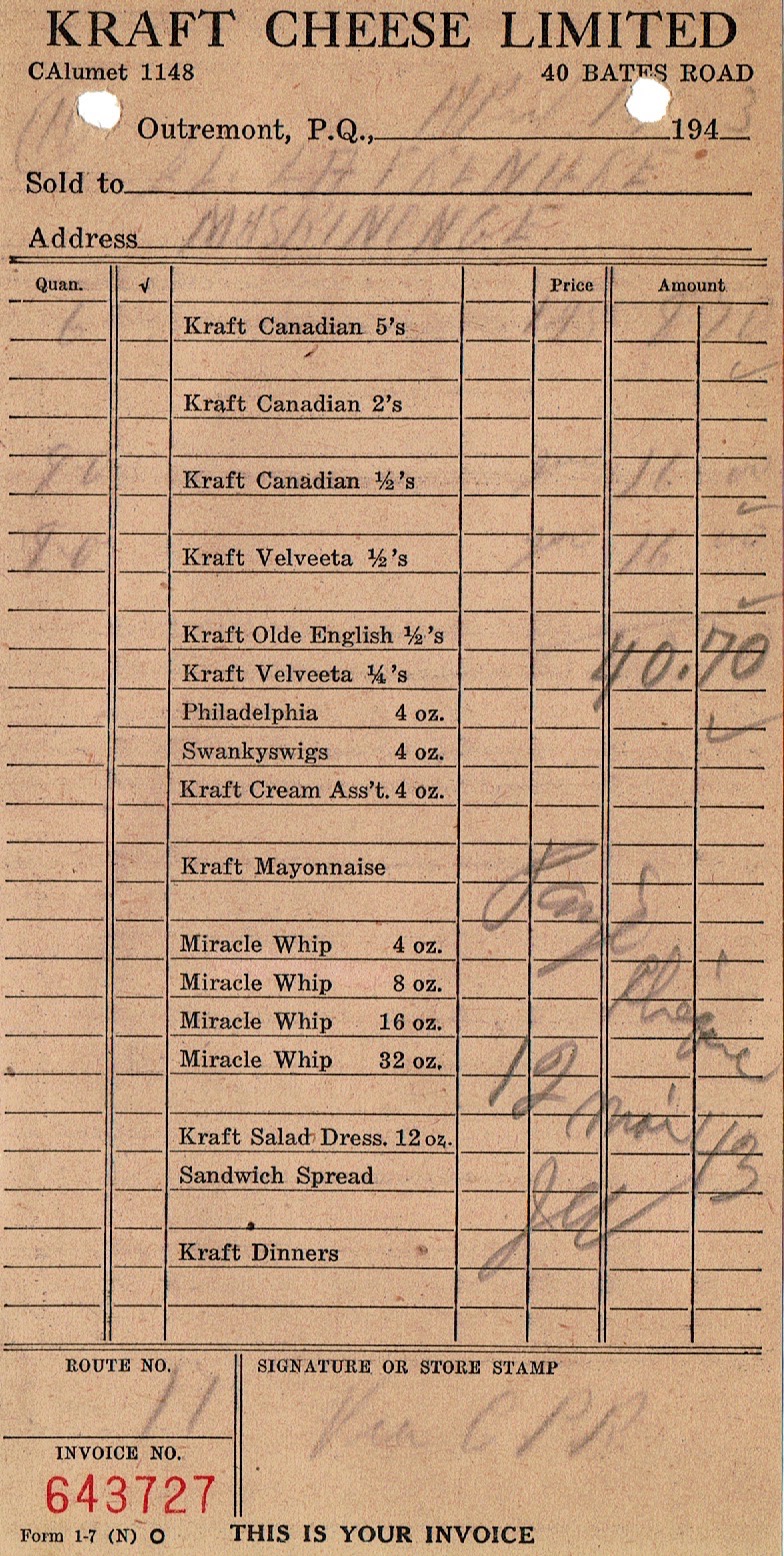 KRAFT CHEESE LIMITED
CAlumet 1148 40 BATES ROAD
Outremont, P.Q., 194 3
Sold to
Address MASKINONGE
Quan. √ Price Amount
6 Kraft Canadian 5's
Kraft Canadian 2's
96 Kraft Canadian ½'s 16
96 Kraft Velveeta ½'s 16
Kraft Olde English ½'s
40.70
Kraft Velveeta ¼'s
Philadelphia 4 oz.
Swankyswigs 4 oz.
Kraft Cream Ass't. 4 oz.
Kraft Mayonnaise
Payé
Miracle Whip 4 oz.
Miracle Whip 8 oz.
Chèque
Miracle Whip 16 oz.
Miracle Whip 32 oz.
12 mai 43
Kraft Salad Dress. 12 oz.
Sandwich Spread
Kraft Dinners
ROUTE NO. SIGNATURE OR STORE STAMP
11 Via CPR
INVOICE NO.
643727
Form 1-7 (N) O THIS IS YOUR INVOICE